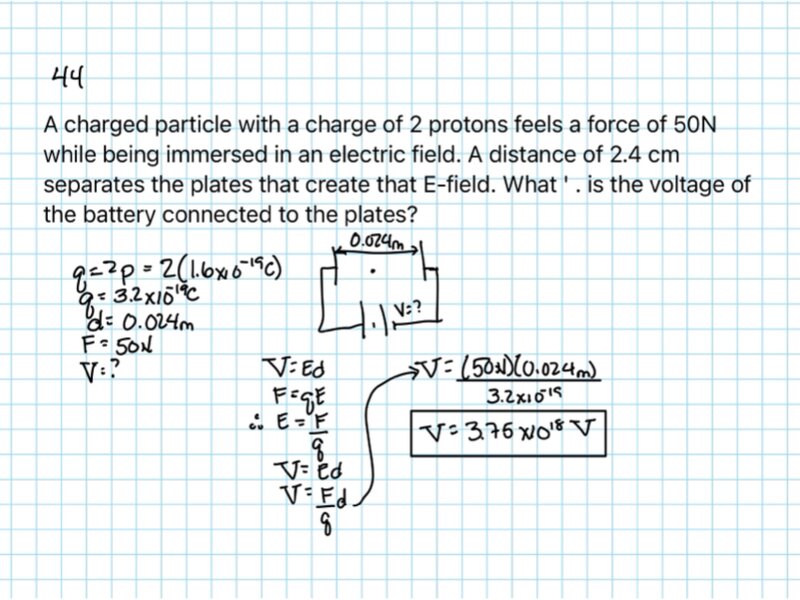 44
A charged particle with a charge of 2 protons feels a force of 50N
while being immersed in an electric field. A distance of 2.4 cm
separates the plates that create that E-field. What ' . is the voltage of
the battery connected to the plates?
0.024m
q=2p = 2(1.6x10⁻¹⁹C)
q= 3.2x10⁻¹⁹C
d= 0.024m
F= 50N
V=?
V=?
V=Ed
F=qE
∴ E = F/q
V= Ed
V= F/q d
V= (50N)(0.024m)/3.2x10⁻¹⁹
V= 3.75 x10¹⁸ V